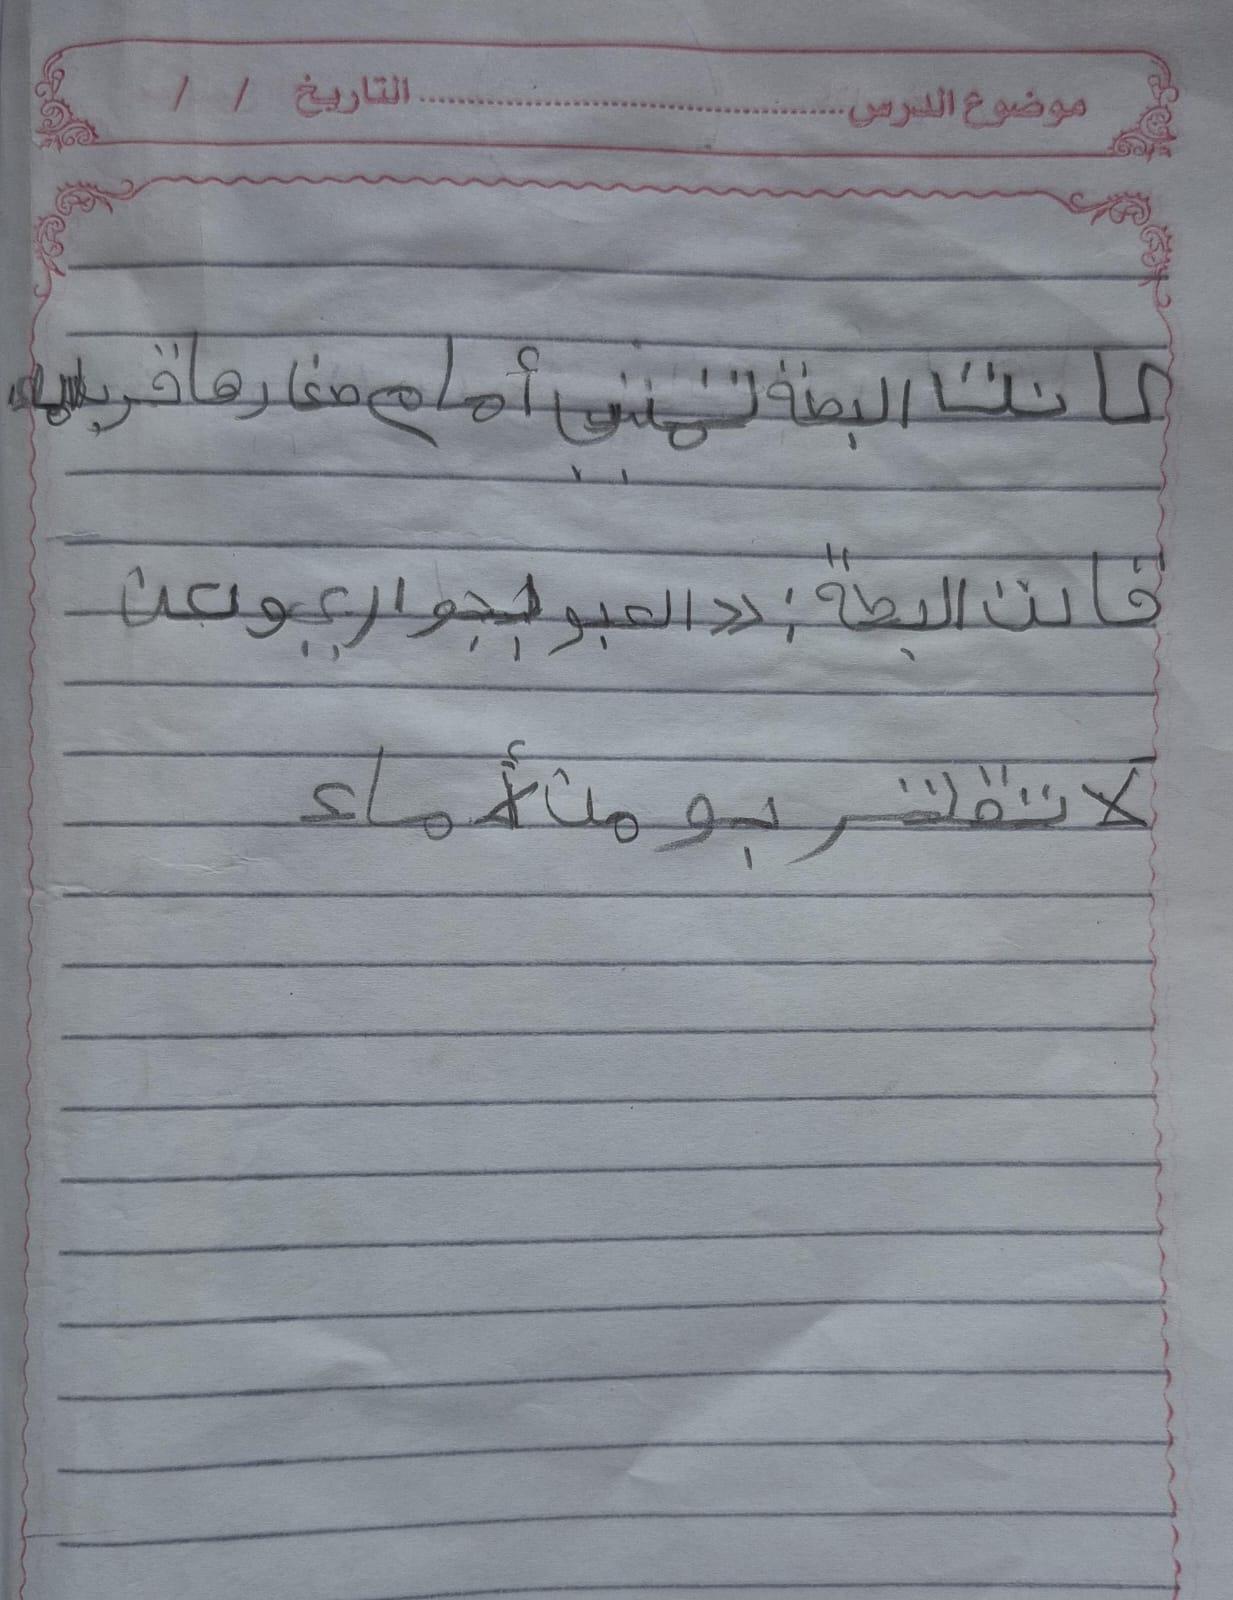 موضوع الدرس ........................ التاريخ / /
كانت البطة تمشي أمام صغارها
قالت البطة : «العبو بجواري وعن
لا تقتربو من أماء